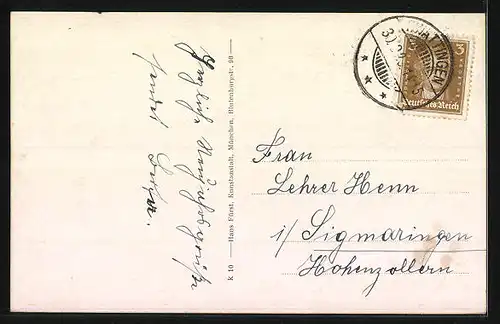 Herzliche Neujahrsgrüße
sendet
K 10 — Hans Fürst, Kunstanstalt, München, Blutenburgstr. 90 —
HATTINGEN
3
Deutsches Reich
Frau
Lehrer Henn
i/ Sigmaringen
Hohenzollern